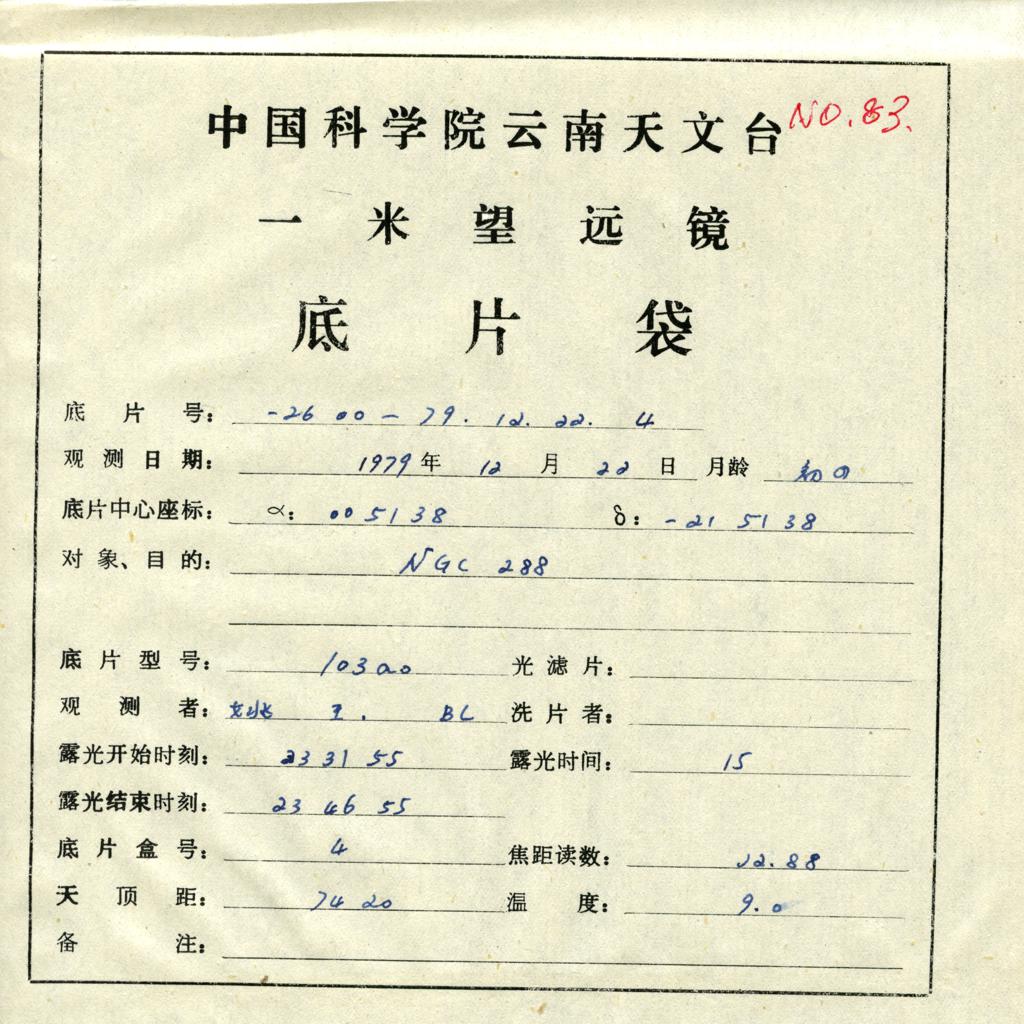 中国科学院云南天文台 NO.83.
一米望远镜
底片袋
底片号: -26 00 - 79. 12. 22. 4
观测日期: 1979年 12 月 22 日 月龄 初四
底片中心座标: α: 00 51 38 δ: -21 51 38
对象、目的: NGC 288
底片型号: 103aO 光滤片:
观测者: 姚 王. BL 洗片者:
露光开始时刻: 23 31 55 露光时间: 15
露光结束时刻: 23 46 55
底片盒号: 4 焦距读数: 12.88
天顶距: 74 20 温度: 9.0
备注: